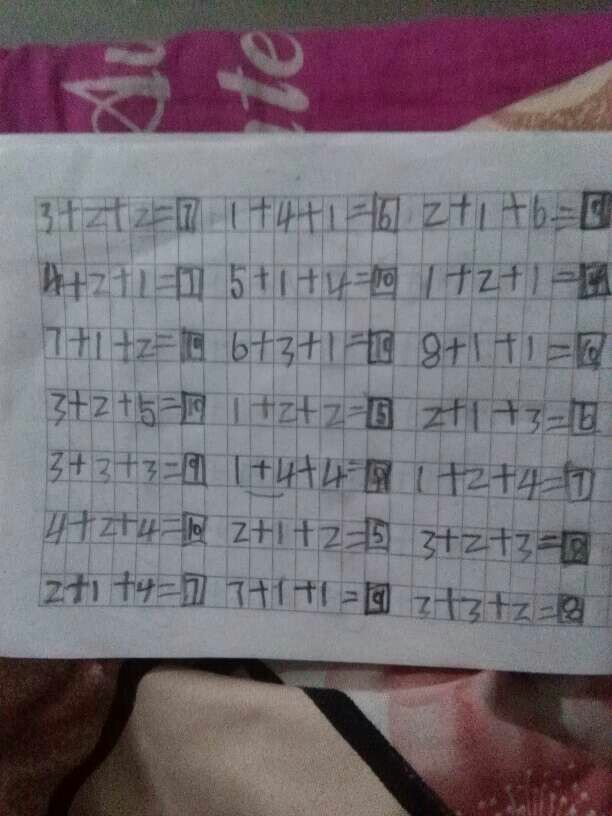 3+2+2=7 1+4+1=6 2+1+6=9
4+2+1=7 5+1+4=10 1+2+1=4
7+1+2=10 6+3+1=10 8+1+1=10
3+2+5=10 1+2+2=5 2+1+3=6
3+3+3=9 1+4+4=9 1+2+4=7
4+2+4=10 2+1+2=5 3+2+3=8
2+1+4=7 7+1+1=9 3+3+2=8